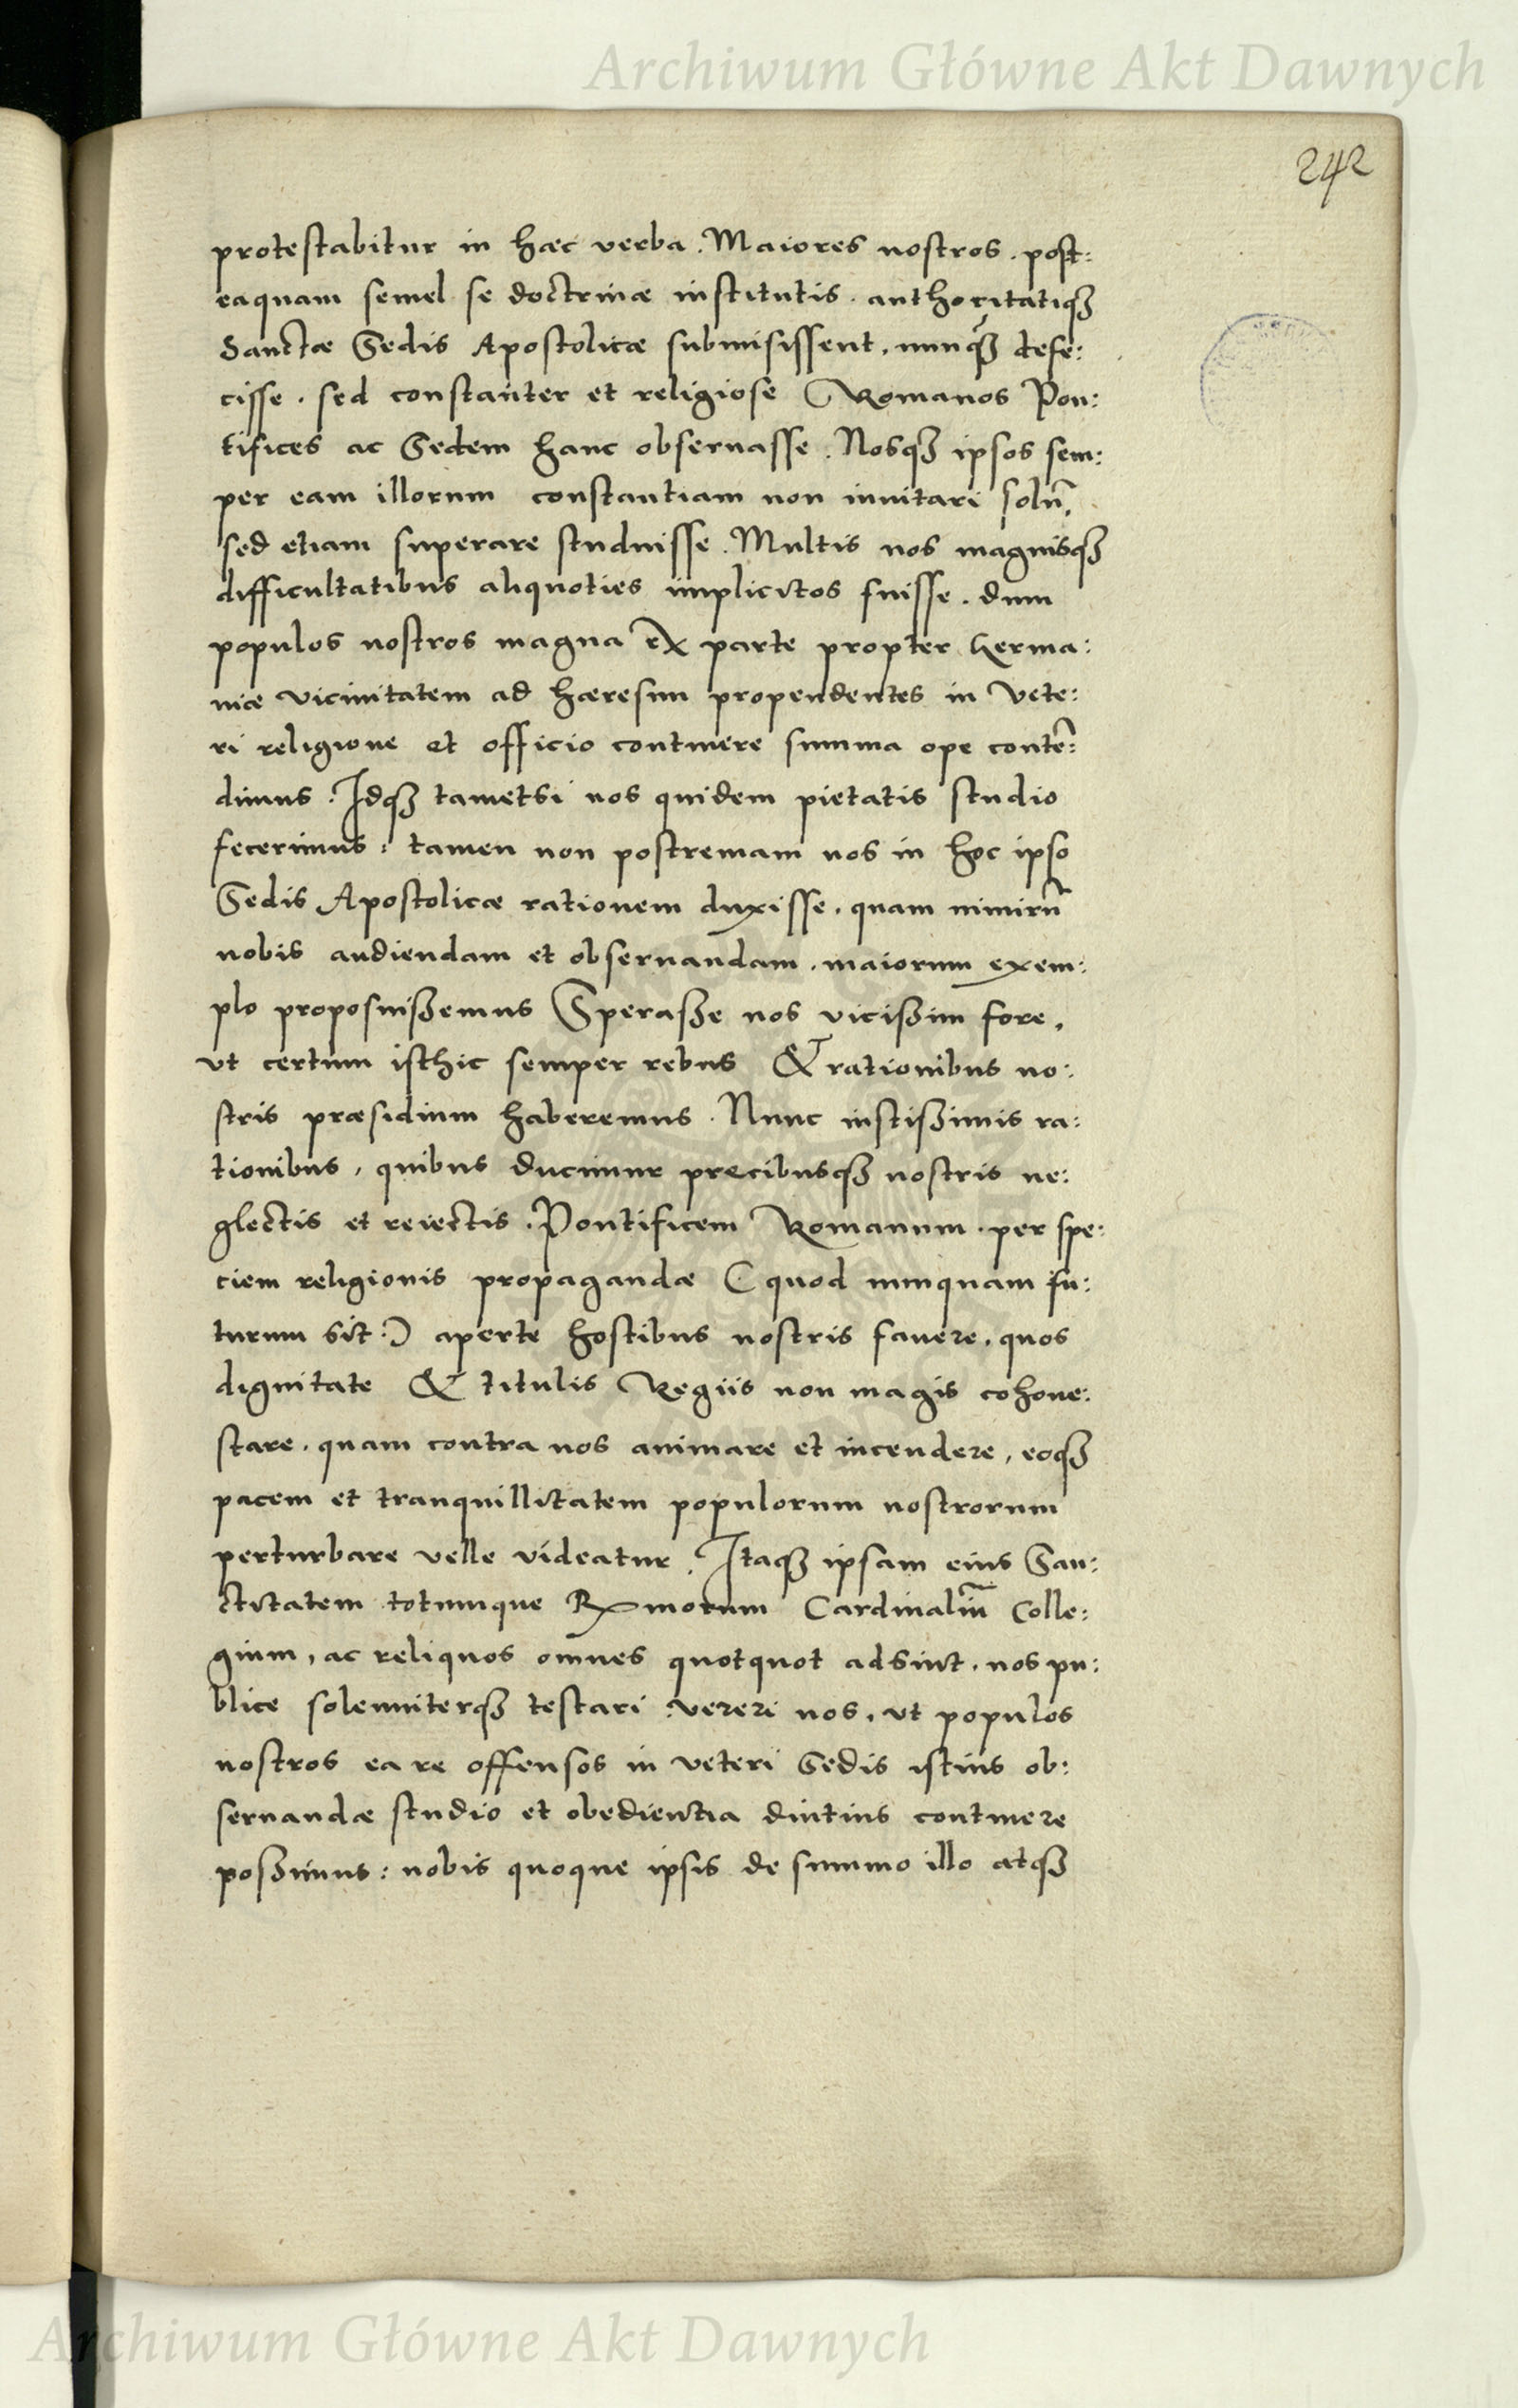 Archiwum Główne Akt Dawnych
242
protestabitur in hæc verba. Maiores nostros. post:
eaquam semel se doctrinæ institutis. authoritatiqꝫ
Sanctæ Sedis Apostolicæ submisissent, nunqꝫ defe:
cisse. sed constanter et religiose Romanos Pon:
tifices ac Sedem hanc obseruasse. Nosqꝫ ipsos sem:
per eam illorum constantiam non imitari solũ,
sed etiam superare studuisse. Multis nos magnisqꝫ
difficultatibus aliquoties implicitos fuisse. dum
populos nostros magna ex parte propter Germa:
niæ vicinitatem ad hæresim propendentes in vete:
ri religione et officio continere summa ope contẽ:
dimus. Idqꝫ tametsi nos quidem pietatis studio
fecerimus: tamen non postremam nos in hoc ipso
Sedis Apostolicæ rationem duxisse. quam nimirũ
nobis audiendam et obseruandam. maiorum exem:
plo proposuißemus Speraße nos vicißim fore,
vt certum isthic semper rebus & rationibus no:
stris præsidium haberemus. Nunc iustißimis ra:
tionibus, quibus ducimur precibusqꝫ nostris ne:
glectis et reiectis. Pontificem Romanum. per spe:
ciem religionis propagandæ (quod nunquam fu:
turum sit:) aperte hostibus nostris fauere, quos
dignitate & titulis Regiis non magis cohone:
stare. quam contra nos animare et incendere, eoqꝫ
pacem et tranquillitatem populorum nostrorum
perturbare velle videatur. Itaqꝫ ipsam eius San:
ctitatem totumque Rmorum Cardinaliũ Colle:
gium, ac reliquos omnes quotquot adsint. nos pu:
blice solenniterqꝫ testari vereri nos, vt populos
nostros ea re offensos in veteri Sedis istius ob:
seruandæ studio et obedientia diutius continere
poßimus: nobis quoque ipsis de summo illo atqꝫ
Archiwum Główne Akt Dawnych